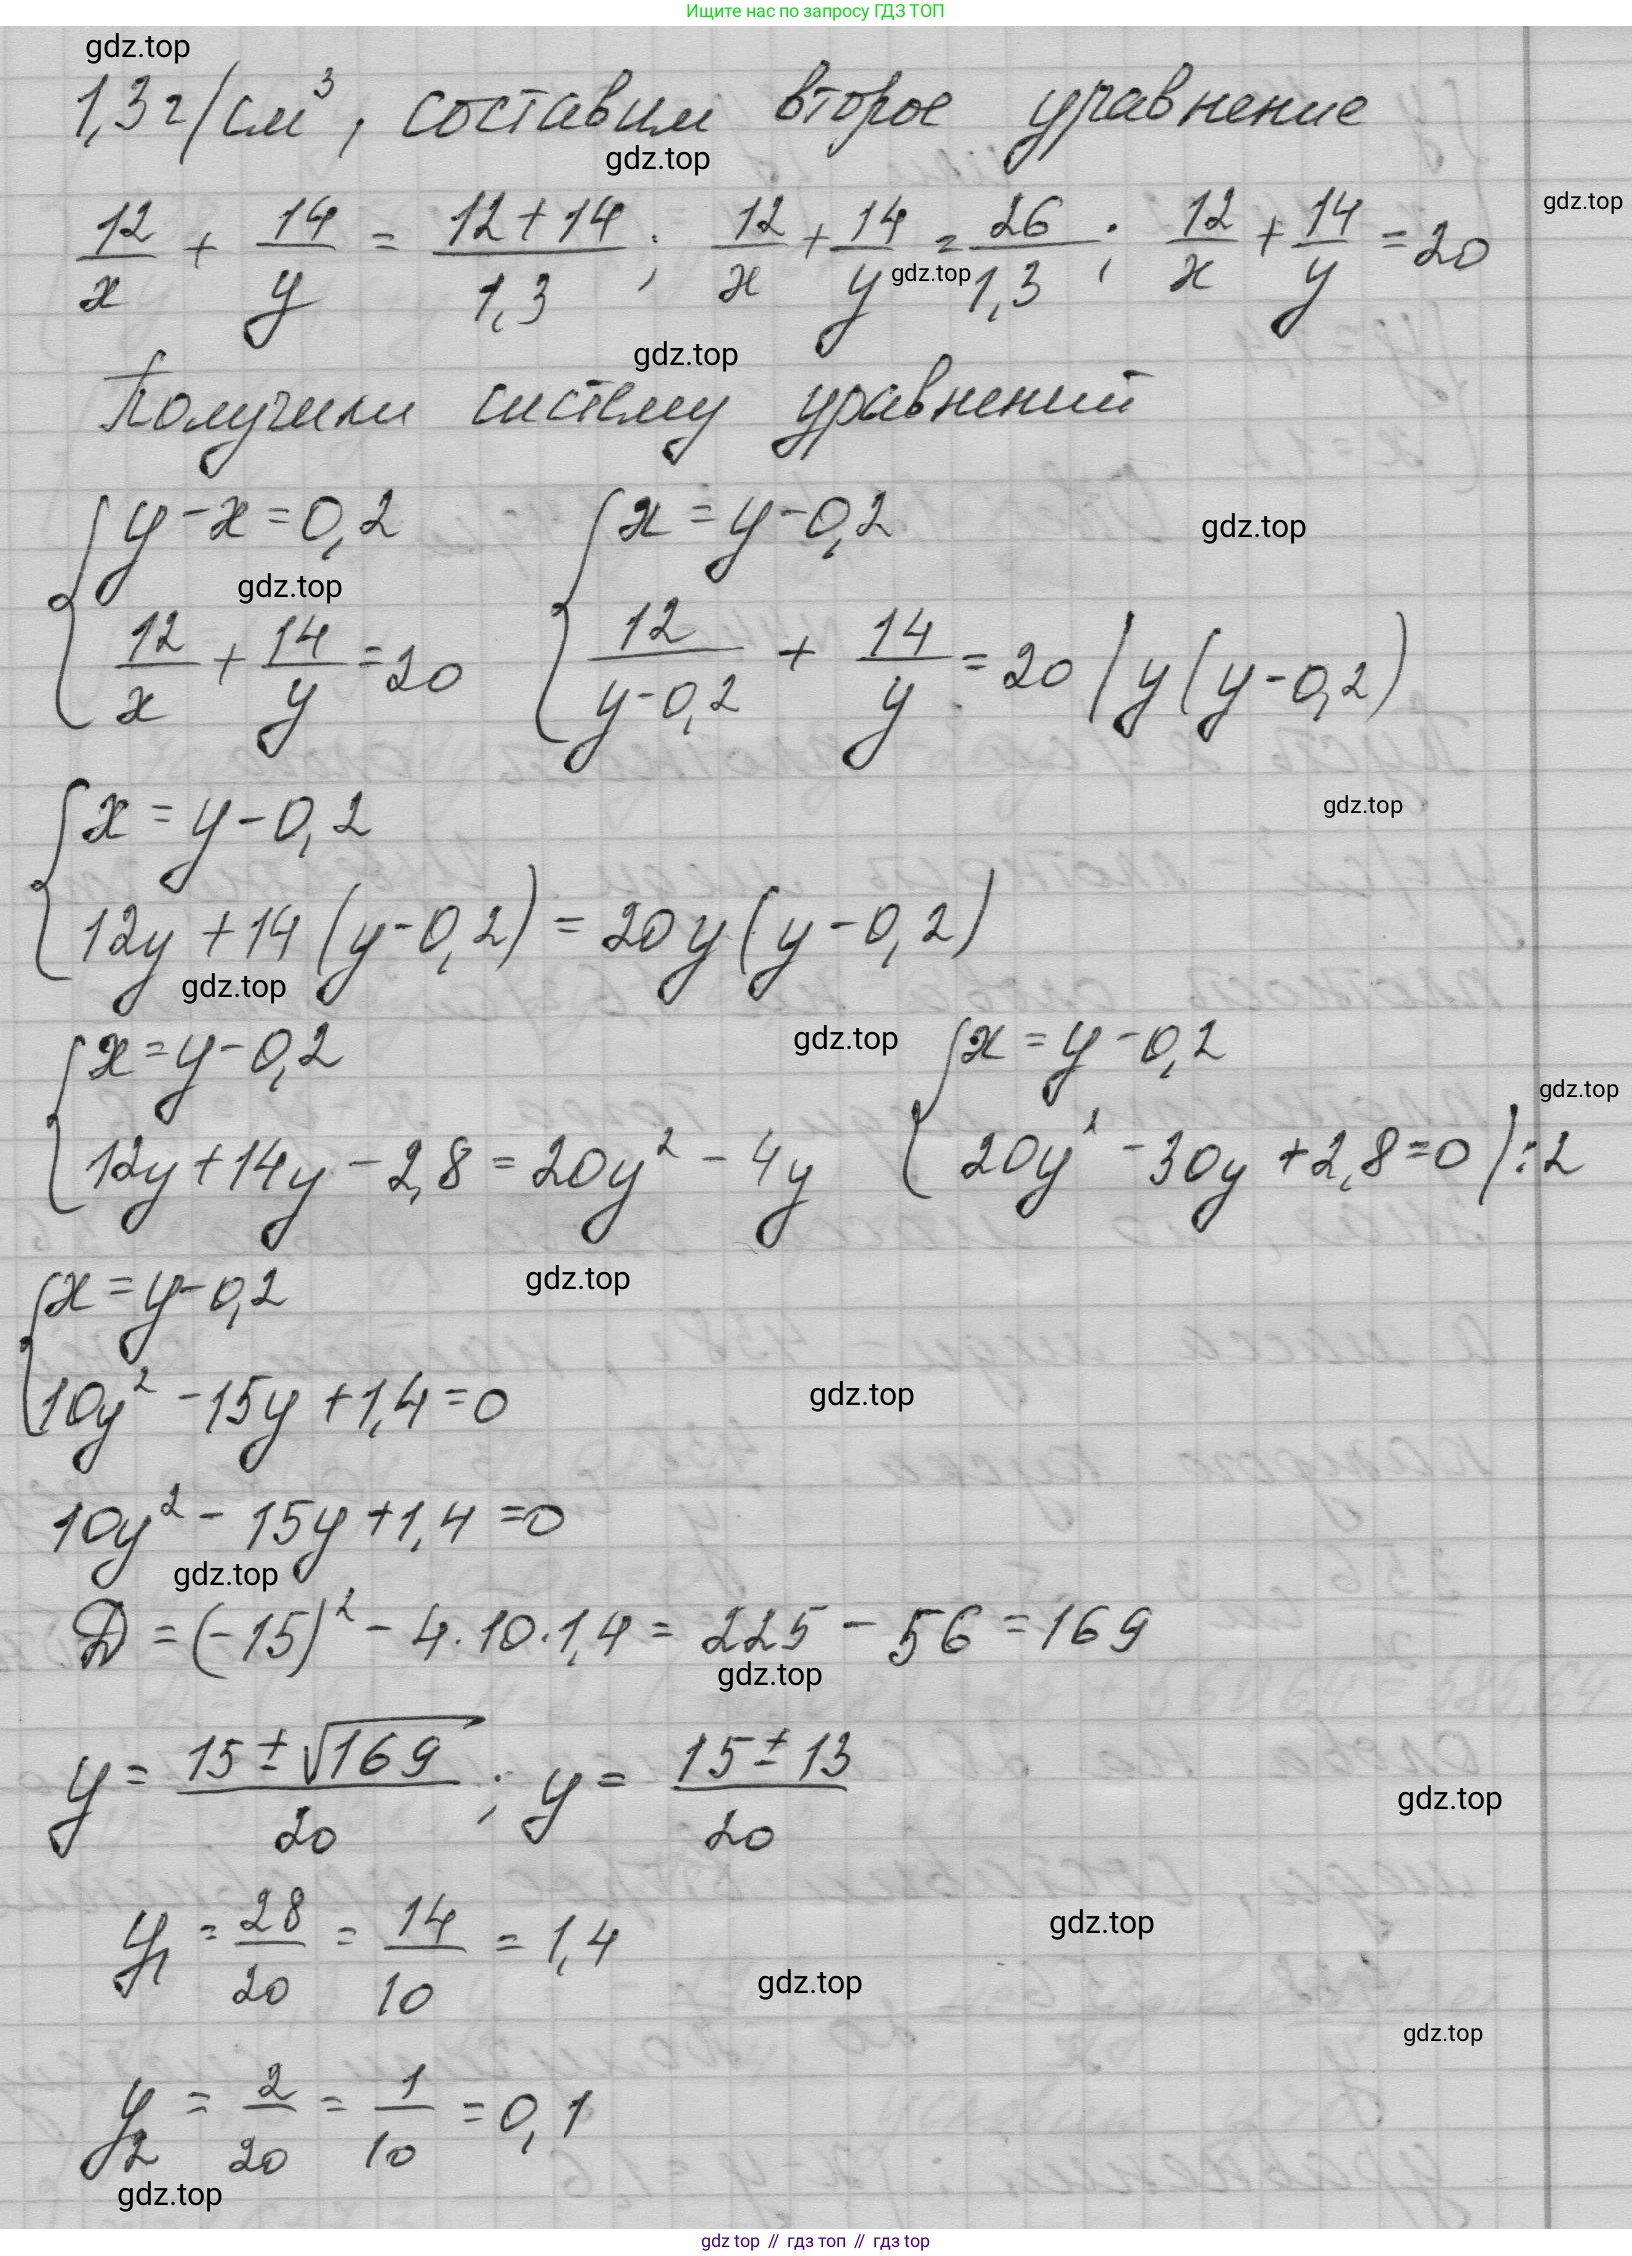 Ищите нас по запросу ГДЗ ТОП
gdz.top
1,3 г/см³, составим второе уравнение
gdz.top
gdz.top
12/x + 14/y = (12+14)/1,3 ; 12/x + 14/y = 26/1,3 ; 12/x + 14/y = 20
gdz.top
gdz.top
Получили систему уравнений
{ y-x=0,2 { x=y-0,2
gdz.top
gdz.top
12/x + 14/y = 20 12/(y-0,2) + 14/y = 20 | y(y-0,2)
{ x=y-0,2
gdz.top
12y+14(y-0,2)=20y(y-0,2)
gdz.top
{ x=y-0,2 { x=y-0,2
gdz.top
gdz.top
12y+14y-2,8=20y²-4y 20y²-30y+2,8=0 ) :2
{ x=y-0,2
gdz.top
10y²-15y+1,4=0
gdz.top
10y²-15y+1,4=0
gdz.top
D=(-15)²-4·10·1,4=225-56=169
gdz.top
y=(15±√169)/20 ; y=(15±13)/20
gdz.top
y₁=28/20=14/10=1,4
gdz.top
gdz.top
gdz.top
y₂=2/20=1/10=0,1
gdz.top
gdz top // гдз топ // гдз top